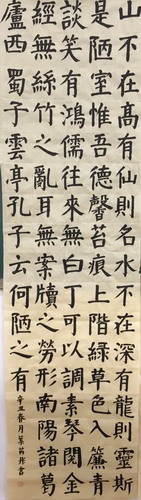 山不在高有仙則名水不在深有龍則靈斯
是陋室惟吾德馨苔痕上階綠草色入簾青
談笑有鴻儒往來無白丁可以調素琴閱金
經無絲竹之亂耳無案牘之勞形南陽諸葛
廬西蜀子雲亭孔子云何陋之有
辛丑春月葉